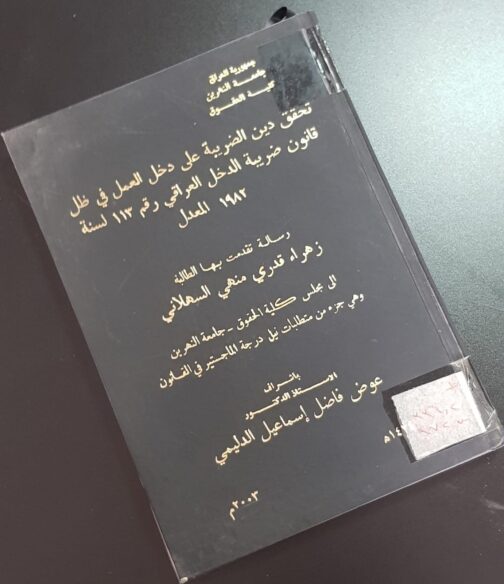 جمهورية العراق
جامعة النهرين
كلية الحقوق
تحقق دين الضريبة على دخل العمل في ظل
قانون ضريبة الدخل العراقي رقم ١١٣ لسنة
١٩٨٢ المعدل
رسالة تقدمت بها الطالبة
زهراء قدري منهي السهلاني
الى مجلس كلية الحقوق - جامعة النهرين
وهي جزء من متطلبات نيل درجة الماجستير في القانون
باشراف
الاستاذ الدكتور
عوض فاضل إسماعيل الدليمي
٢٠٠٣م